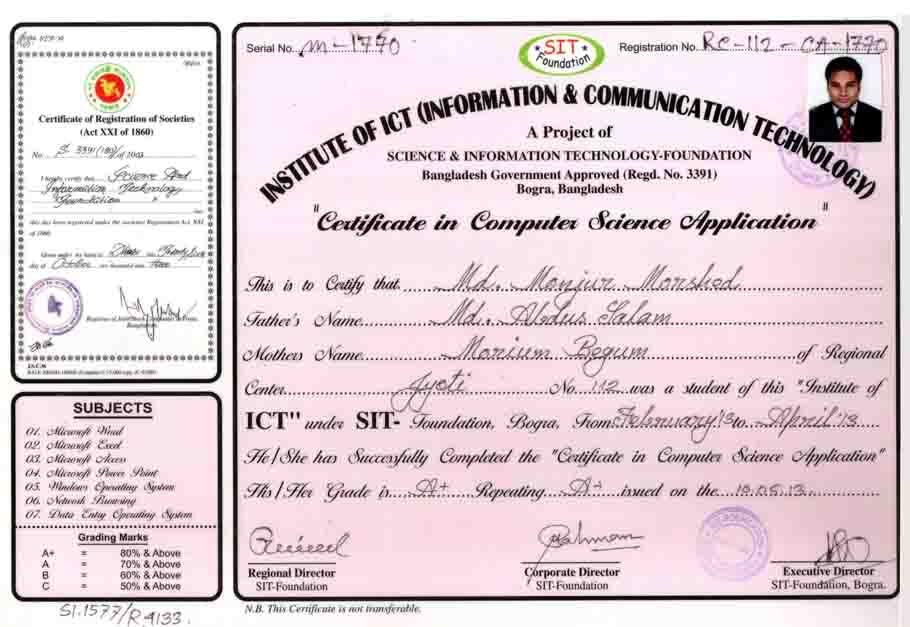 Certificate of Registration of Societies
(Act XXI of 1860)
No. S 3391(180)/of 2003
I hereby certify that Science And
Information Technology
Foundation
this day been registered under the societies Registration Act, XXI
of 1860.
Given under my hand at Dhaka this Twenty
day of October two thousand three
SUBJECTS
01. Microsoft Word
02. Microsoft Excel
03. Microsoft Access
04. Microsoft Power Point
05. Windows Operating System
06. Network Browsing
07. Data Entry Operating System
Grading Marks
A+ = 80% & Above
A = 70% & Above
B = 60% & Above
C = 50% & Above
Sl.1577/R.4133.
Serial No. M-1770
SIT
Foundation
Registration No. RC-112-CA-1770
INSTITUTE OF ICT (INFORMATION & COMMUNICATION TECHNOLOGY)
A Project of
SCIENCE & INFORMATION TECHNOLOGY-FOUNDATION
Bangladesh Government Approved (Regd. No. 3391)
Bogra, Bangladesh
"Certificate in Computer Science Application"
This is to Certify that Md. Monjur Morshed
Father's Name Md. Abdus Salam
Mothers Name Morium Begum of Regional
Center Jyoti No 112 was a student of this "Institute of
ICT" under SIT- Foundation, Bogra, From February'13 to April'13
He/She has Successfully Completed the "Certificate in Computer Science Application"
His/Her Grade is A+ Repeating A+ issued on the 10.05.13
Regional Director
SIT-Foundation
Corporate Director
SIT-Foundation
Executive Director
SIT-Foundation, Bogra.
N.B. This Certificate is not transferable.